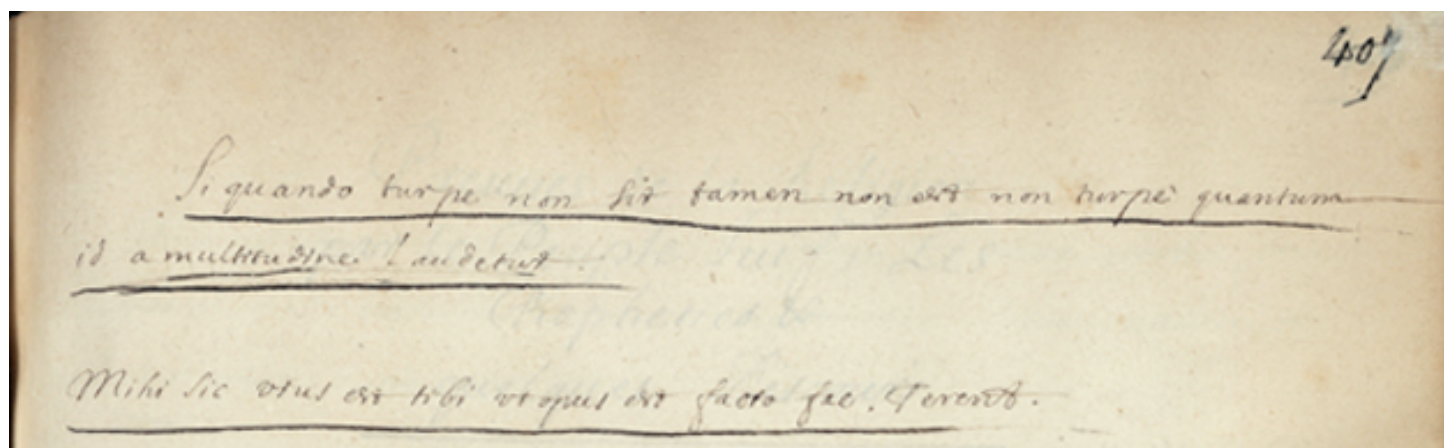 407
Si quando turpe non sit tamen non est non turpe quantum
id a multitudine laudetur.
Mihi sic usus est tibi ut opus est facto fac. Terent.